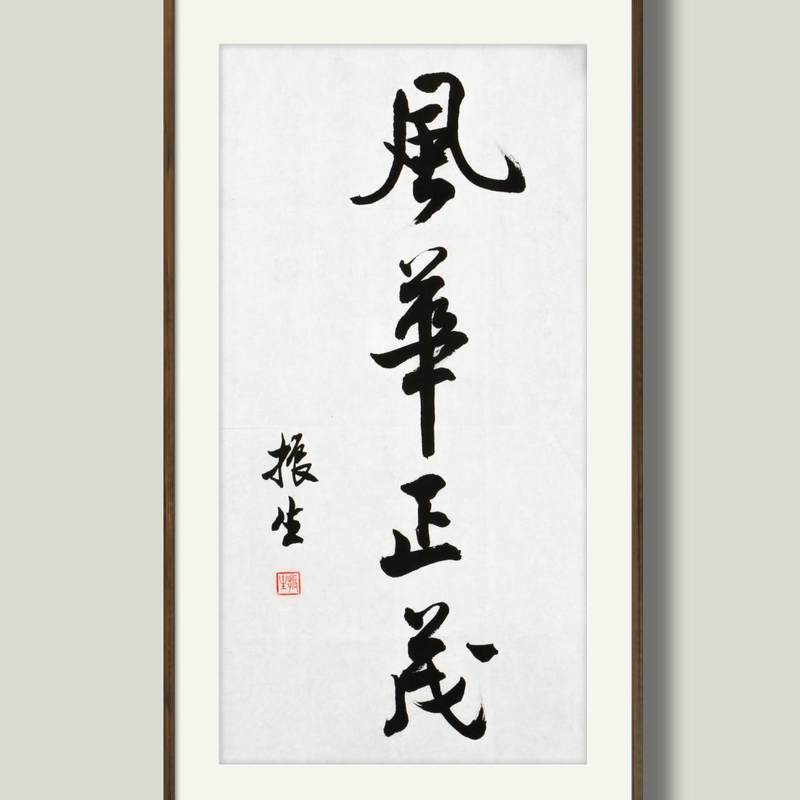 風華正茂
振生